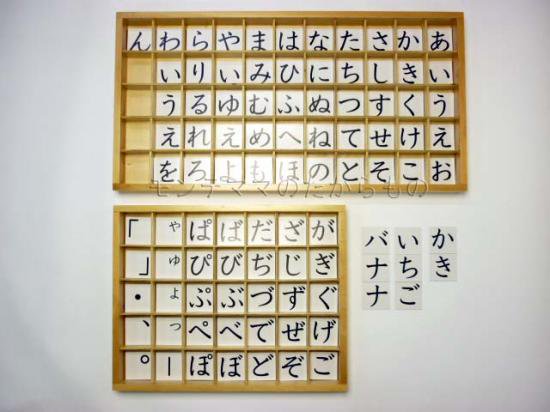 あいうえお
かきくけこ
さしすせそ
たちつてと
なにぬねの
はひふへほ
まみむめも
やいゆえよ
らりるれろ
わいうえを
ん
モンテママのたからもの
かき
いちご
バナナ
がぎぐげご
ざじずぜぞ
だぢづでど
ばびぶべぼ
ぱぴぷぺぽ
ゃゅょっー
「」・、。